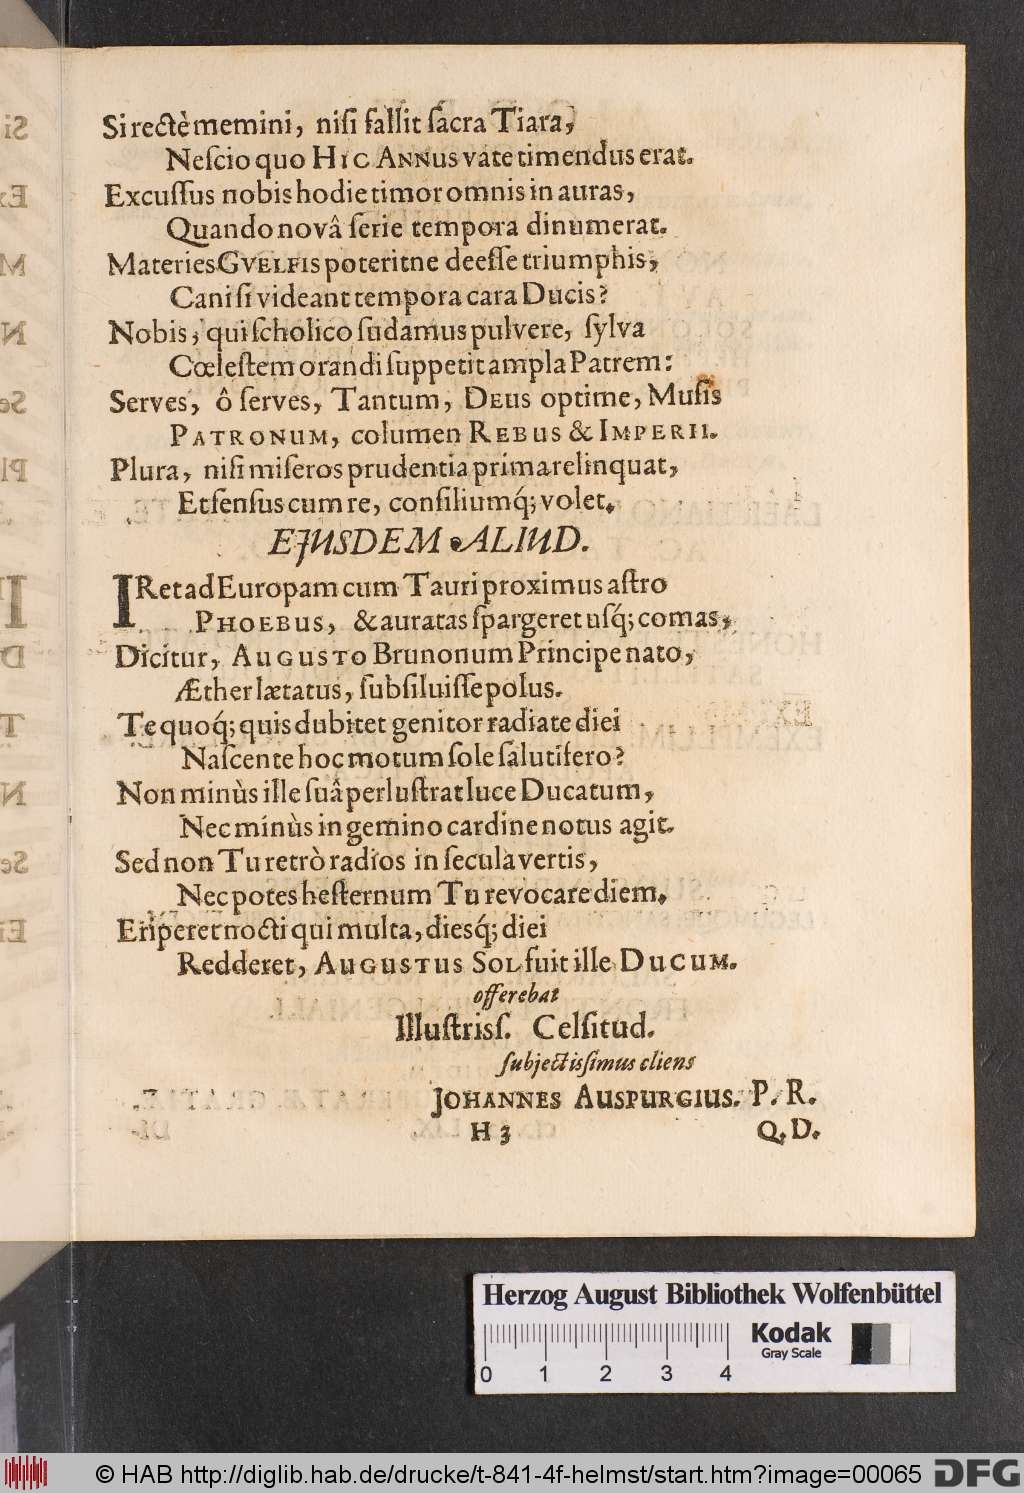 Si rectè memini, niſi fallit ſacra Tiara,
Neſcio quo HIC ANNUS vate timendus erat.
Excuſſus nobis hodie timor omnis in auras,
Quando novâ ſerie tempora dinumerat.
Materies GVELFIS poteritne deeſſe triumphis,
Cani ſi videant tempora cara Ducis?
Nobis, qui ſcholico ſudamus pulvere, ſylva
Cœleſtem orandi ſuppetit ampla Patrem:
Serves, ô ſerves, Tantum, DEUS optime, Muſis
PATRONUM, columen REBUS & IMPERII.
Plura, niſi miſeros prudentia prima relinquat,
Et ſenſus cum re, conſiliumq́; volet.
EJUSDEM ALIUD.
IRet ad Europam cum Tauri proximus aſtro
PHOEBUS, & auratas ſpargeret uſq́; comas,
Dicitur, AUGUSTO Brunonum Principe nato,
Æther lætatus, ſubſiluiſſe polus.
Te quoq́; quis dubitet genitor radiate diei
Naſcente hoc motum ſole ſalutifero?
Non minùs ille ſuâ perluſtrat luce Ducatum,
Nec minùs in gemino cardine notus agit.
Sed non Tu retrò radios in ſecula vertis,
Nec potes heſternum Tu revocare diem.
Eriperet nocti qui multa, diesq́; diei
Redderet, AUGUSTUS SOL fuit ille DUCUM.
offerebat
Illuſtriſſ. Celſitud.
ſubjectiſſimus cliens
JOHANNES AUSPURGIUS. P. R.
H 3 Q. D.
Herzog August Bibliothek Wolfenbüttel
Kodak
Gray Scale
0 1 2 3 4
© HAB http://diglib.hab.de/drucke/t-841-4f-helmst/start.htm?image=00065
DFG